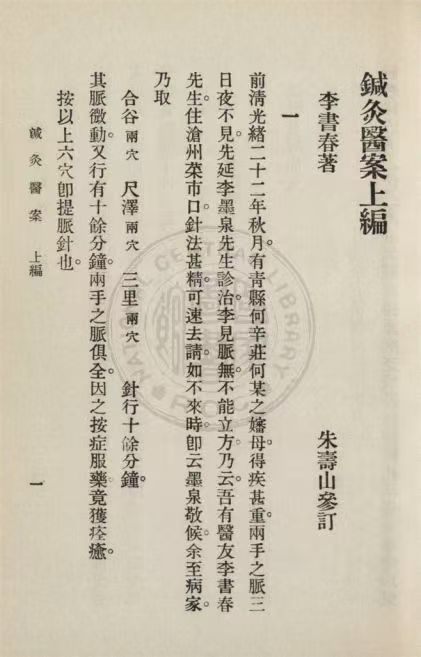 鍼灸醫案上編
李書春著　朱壽山參訂
一
前淸光緖二十二年秋月。有靑縣何辛莊何某之嬸母。得疾甚重。兩手之脈三
日夜不見。先延李墨泉先生診治。李見脈無。不能立方。乃云。吾有醫友李書春
先生。住滄州菜市口。針法甚精。可速去請。如不來時。卽云墨泉敬候。余至病家。
乃取
合谷兩穴　尺澤兩穴　三里兩穴　針行十餘分鐘。
其脈微動。又行有十餘分鐘。兩手之脈俱全。因之按症服藥。竟獲痊癒。
按以上六穴。卽提脈針也。
鍼灸醫案　上編　一
NATIONAL CENTRAL LIBRARY